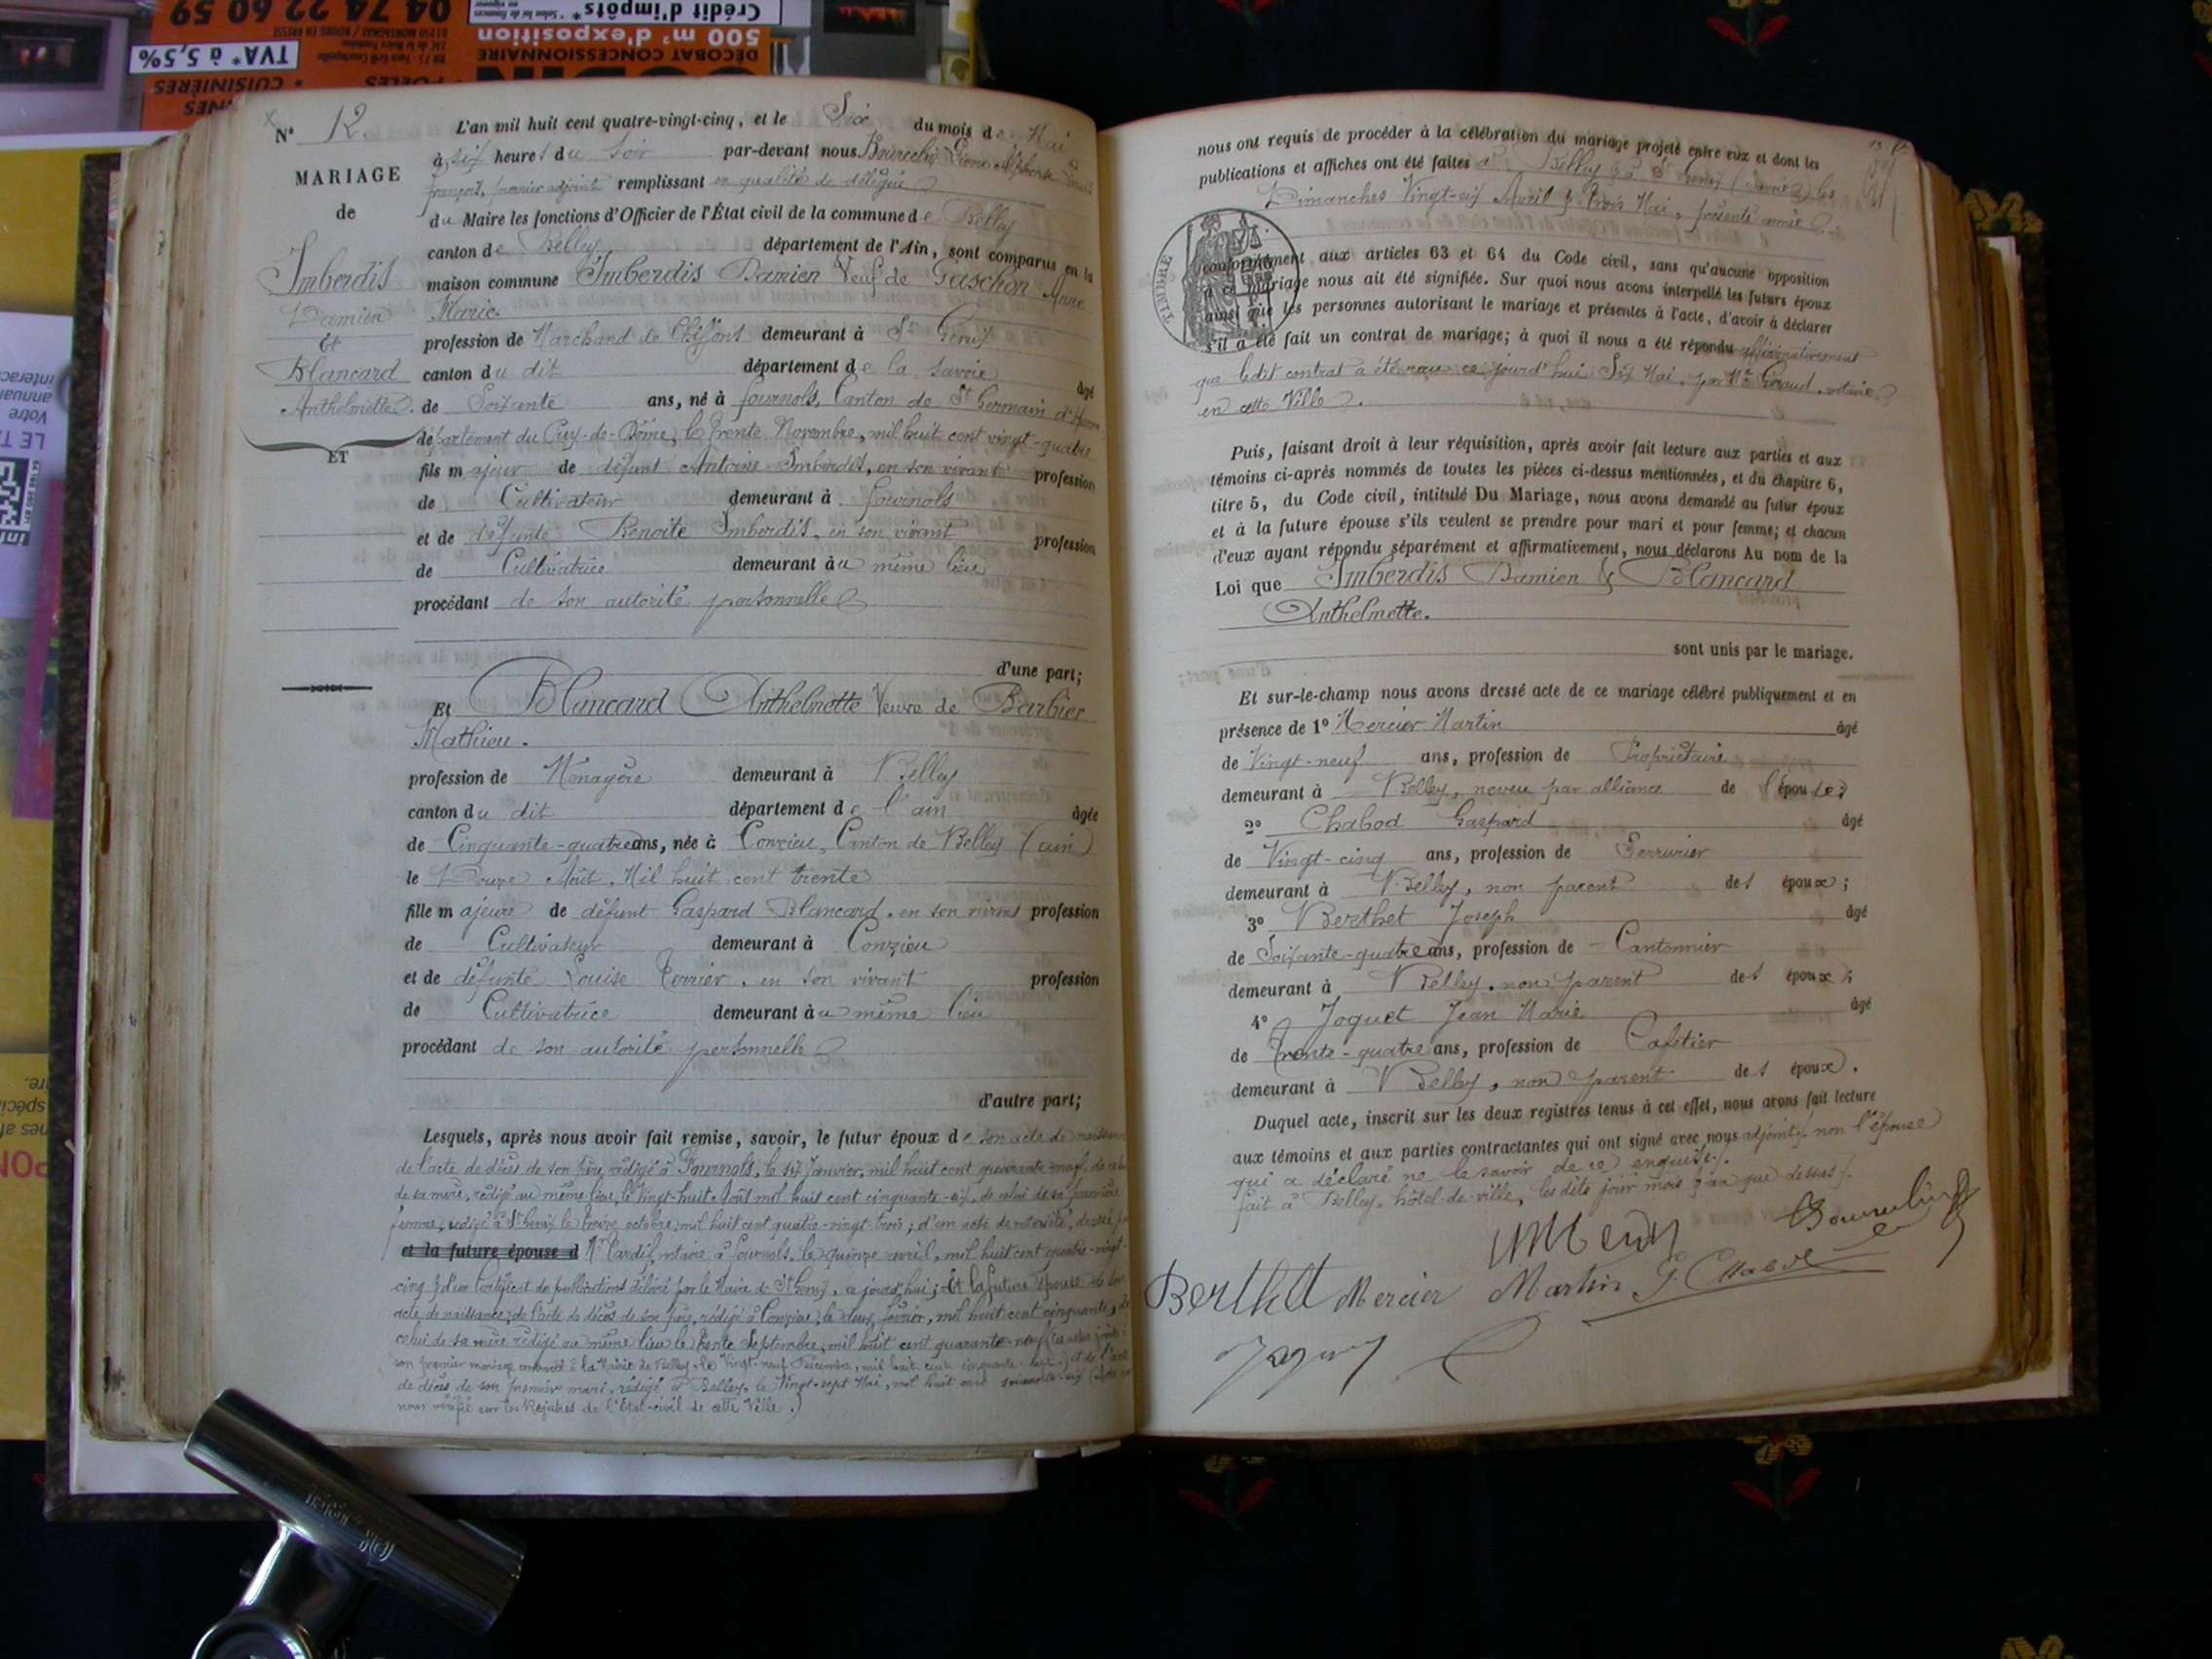 04 74 22 60 59
TVA* à 5,5%
Crédit d'impôts*
500 m² d'exposition
DÉCOBAT CONCESSIONNAIRE
POÊLES • CUISINIÈRES
N° 12.
MARIAGE
de
Imberdis
Damien
Et
Blancard
Anthelmette.
ET
L'an mil huit cent quatre-vingt-cinq, et le Six du mois de Mai
à six heures du soir par-devant nous
françois, premier adjoint remplissant en qualité de délégué
du Maire les fonctions d'Officier de l'État civil de la commune de Belley
canton de Belley département de l'Ain, sont comparus en la
maison commune Imberdis Damien Veuf de Gaschon Anne
Marie.
profession de Marchand de Chiffons demeurant à St Genix
canton du dit département de la Savoie âgé
de Soixante ans, né à fournols, Canton de St Germain
département du Puy-de-Dôme, le trente Novembre, mil huit cent vingt-quatre
fils majeur de défunt Antoine Imberdis, en son vivant profession
de Cultivateur demeurant à fournols
et de défunte Benoite Imberdis, en son vivant profession
de Cultivatrice demeurant au même lieu
procédant de son autorité personnelle
d'une part;
Et Blancard Anthelmette Veuve de Barbier
Mathieu.
profession de Ménagère demeurant à Belley
canton du dit département de l'ain âgée
de Cinquante-quatre ans, née à Conzieu, Canton de Belley (ain)
le Douze Août, Mil huit cent trente
fille majeure de défunt Gaspard Blancard, en son vivant profession
de Cultivateur demeurant à Conzieu
et de défunte Louise en son vivant profession
de Cultivatrice demeurant au même lieu
procédant de son autorité personnelle
d'autre part;
Lesquels, après nous avoir fait remise, savoir, le futur époux de son acte de naissance
de l'acte de décès de son Père, rédigé à Fournols, le six Janvier, mil huit cent quarante neuf, de celui
de sa mère, rédigé au même lieu, le Vingt-huit Août mil huit cent cinquante-six, de celui de sa première
femme, rédigé à St Genix le treize octobre, mil huit cent quatre-vingt-trois; d'un acte de notoriété, dressé par
et la future épouse d Me Tardif, notaire à fournols, le quinze avril, mil huit cent quatre-vingt-
cinq & d'un Certificat de publications délivré par le Maire de St Genix, ce jourd'hui; Et la future épouse de son
acte de naissance, de l'acte de décès de son Père, rédigé à Conzieu, le deux février, mil huit cent cinquante, de
celui de sa mère rédigé au même lieu le trente Septembre, mil huit cent quarante-neuf
son premier mariage contracté à la Mairie de Belley, le Vingt-neuf Décembre, mil huit cent cinquante-sept) et de l'acte
de décès de son premier mari, rédigé à Belley, le Vingt-sept Mai, mil huit cent
nous vérifié sur les Registres de l'Etat-civil de cette Ville.)
nous ont requis de procéder à la célébration du mariage projeté entre eux et dont les
publications et affiches ont été faites à Belley & à St Genix (Savoie) les
Dimanches Vingt-six Avril & trois Mai, présente année
TIMBRE
conformément aux articles 63 et 64 du Code civil, sans qu'aucune opposition
à ce mariage nous ait été signifiée. Sur quoi nous avons interpellé les futurs époux
ainsi que les personnes autorisant le mariage et présentes à l'acte, d'avoir à déclarer
s'il a été fait un contrat de mariage; à quoi il nous a été répondu affirmativement
que ledit contrat a été reçu ce jourd'hui Six Mai, par Me Giraud, notaire
en cette Ville.
Puis, faisant droit à leur réquisition, après avoir fait lecture aux parties et aux
témoins ci-après nommés de toutes les pièces ci-dessus mentionnées, et du chapitre 6,
titre 5, du Code civil, intitulé Du Mariage, nous avons demandé au futur époux
et à la future épouse s'ils veulent se prendre pour mari et pour femme; et chacun
d'eux ayant répondu séparément et affirmativement, nous déclarons Au nom de la
Loi que Imberdis Damien & Blancard
Anthelmette.
sont unis par le mariage.
Et sur-le-champ nous avons dressé acte de ce mariage célébré publiquement et en
présence de 1° Mercier Martin âgé
de Vingt-neuf ans, profession de Propriétaire
demeurant à Belley, neveu par alliance de l'épouse;
2° Chabod Gaspard âgé
de Vingt-cinq ans, profession de Serrurier
demeurant à Belley, non parent des époux;
3° Berthet Joseph âgé
de Soixante-quatre ans, profession de Cantonnier
demeurant à Belley, non parent des époux;
4° Joguet Jean Marie âgé
de trente-quatre ans, profession de Cafetier
demeurant à Belley, non parent des époux.
Duquel acte, inscrit sur les deux registres tenus à cet effet, nous avons fait lecture
aux témoins et aux parties contractantes qui ont signé avec nous adjoint, non l'épouse
qui a déclaré ne le savoir de ce enquise.
fait à Belley, hôtel-de-ville, les dits jour mois & an que dessus.
imberdis
Berthet Mercier Martin